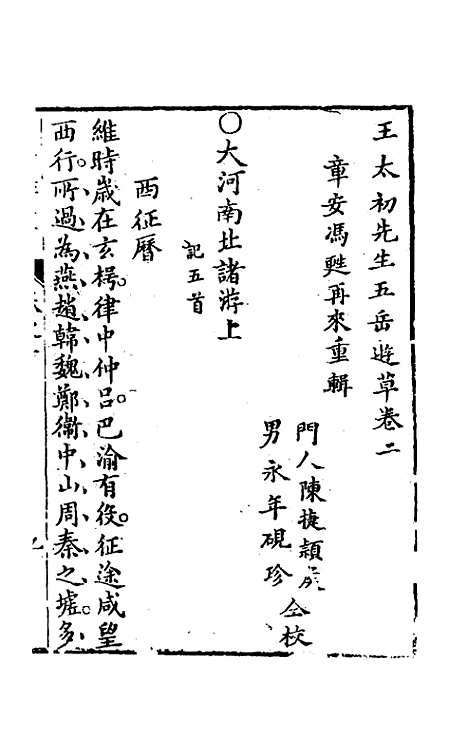 王太初先生五岳遊草卷二
章安馮甦再來重輯
門人陳捷頴
男永年硯珍
仝校
○大河南北諸游上
記五首
西征曆
維時歲在玄枵。律中仲呂。巴渝有役。征途咸望
西行。所過為燕趙韓魏鄭衛中山周秦之墟。多